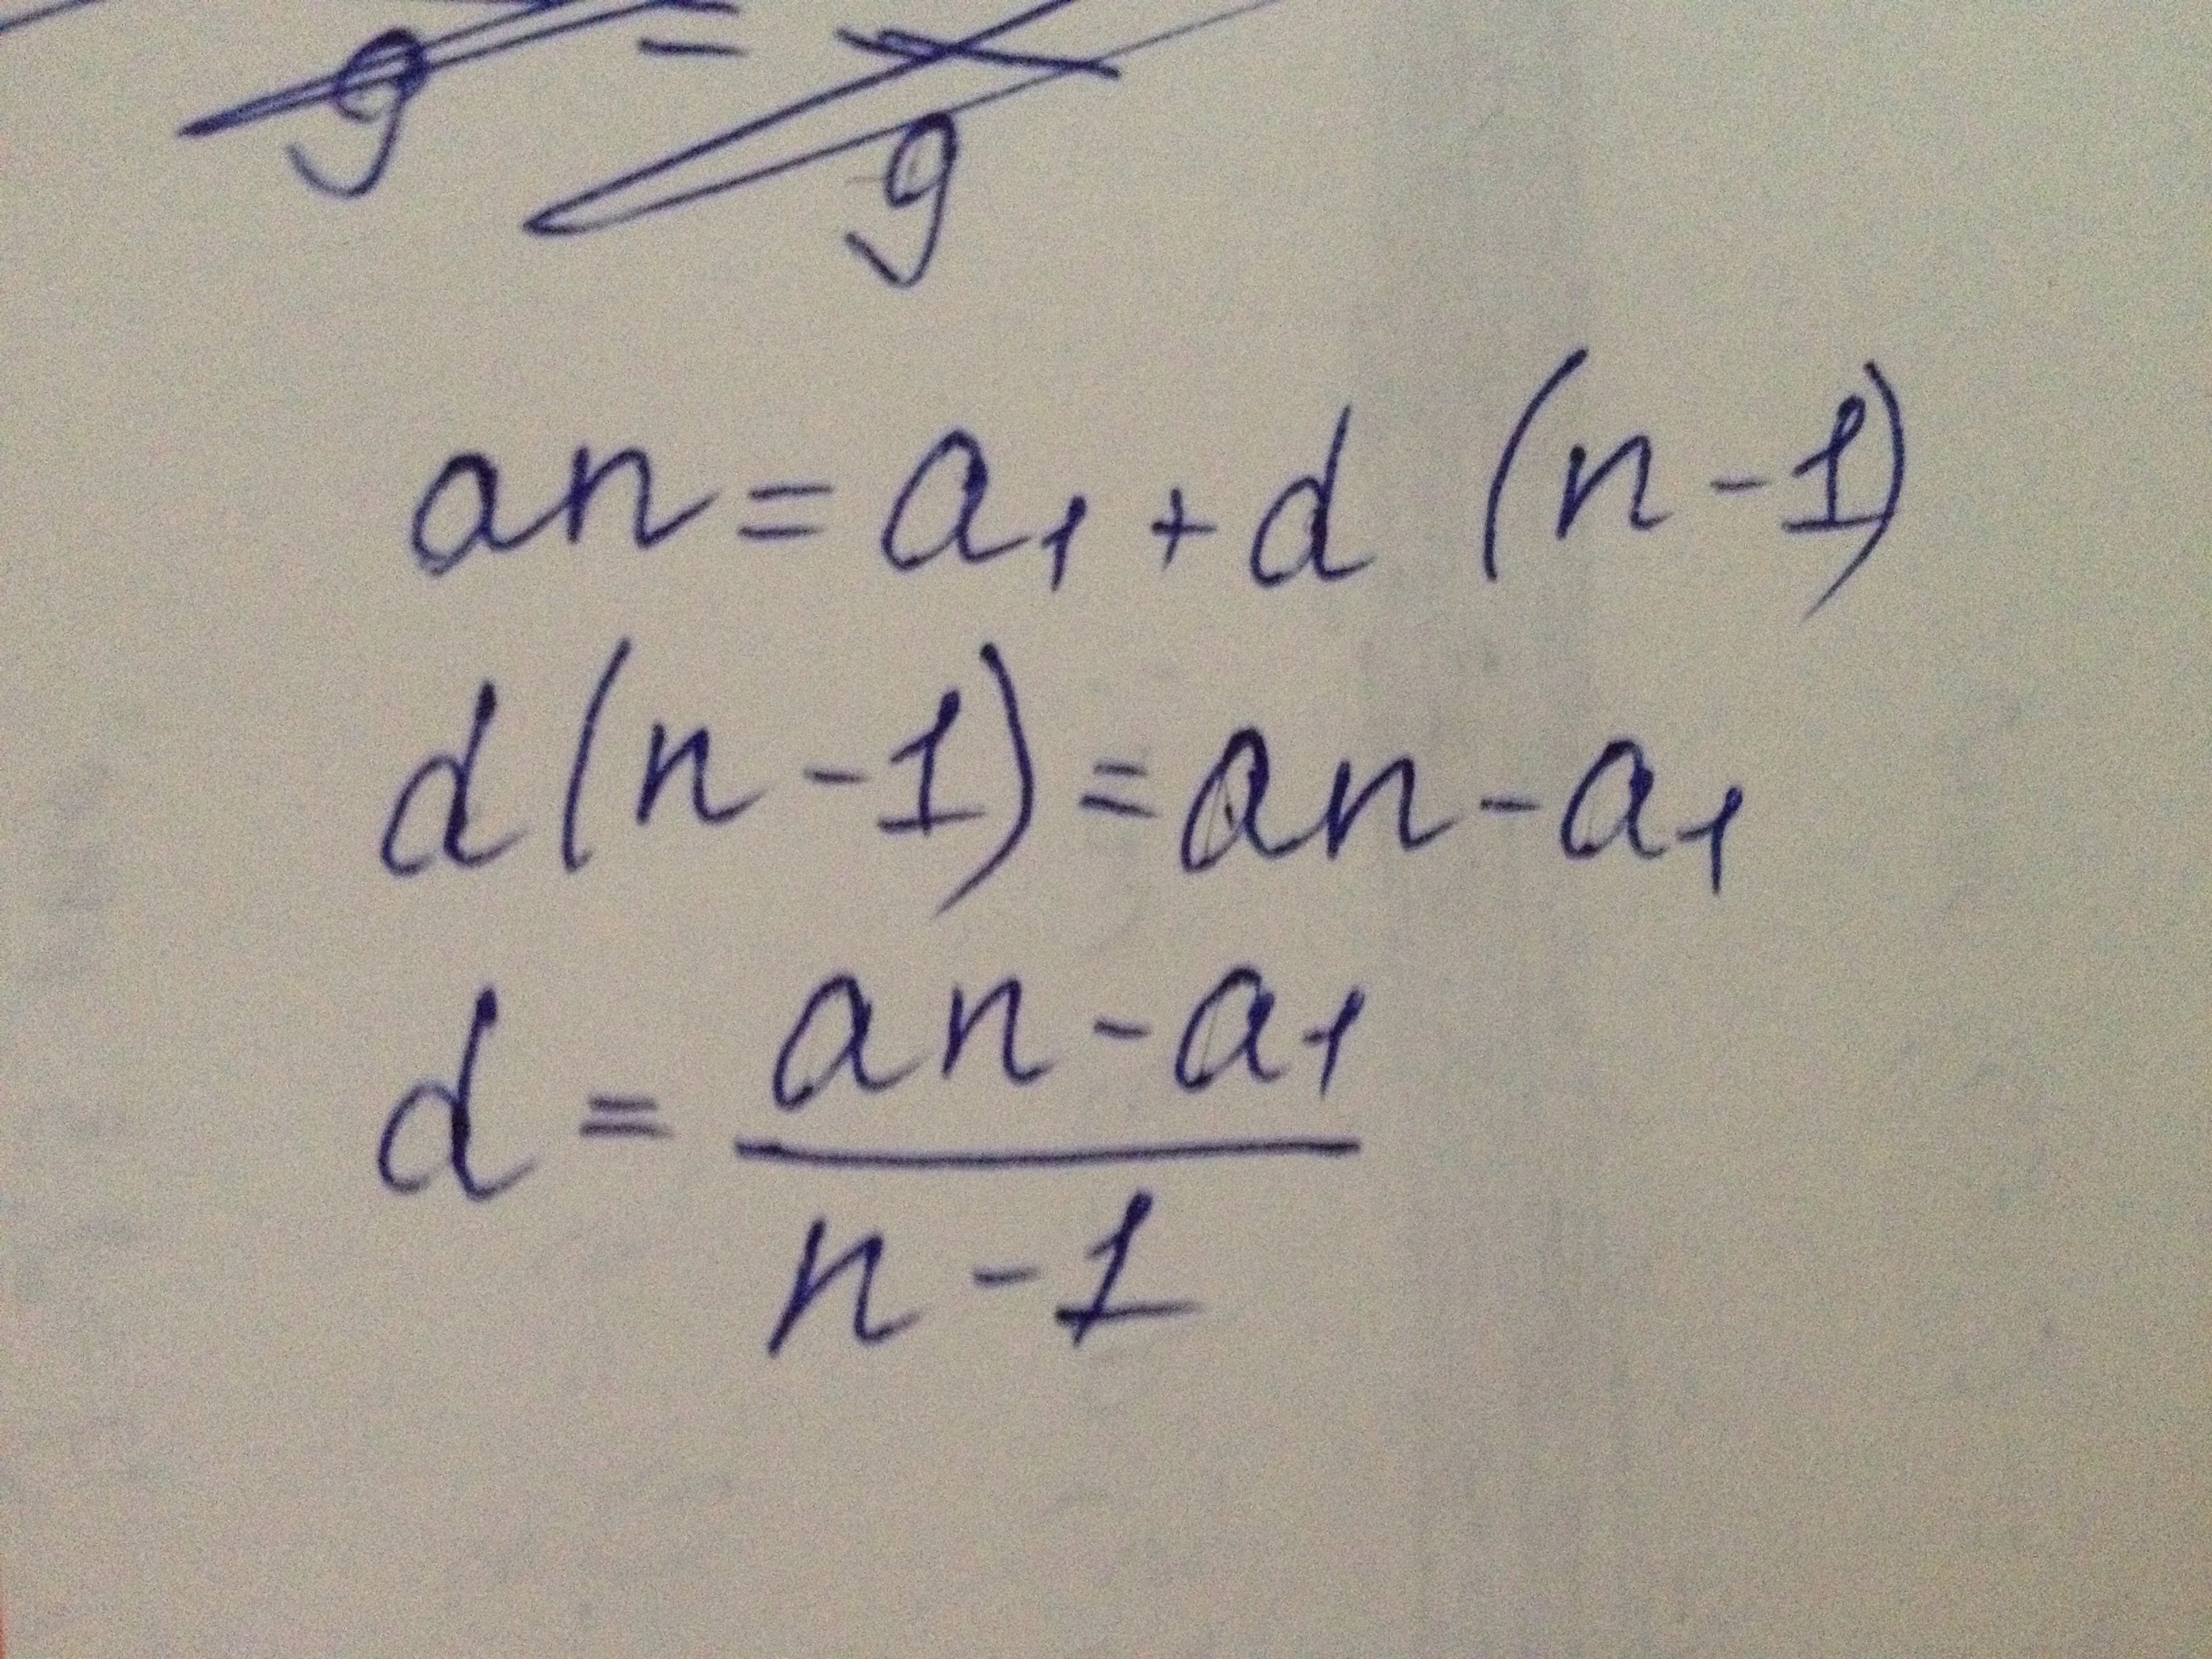 9 = 9
an = a1 + d (n-1)
d(n-1) = an - a1
d = an - a1
n - 1